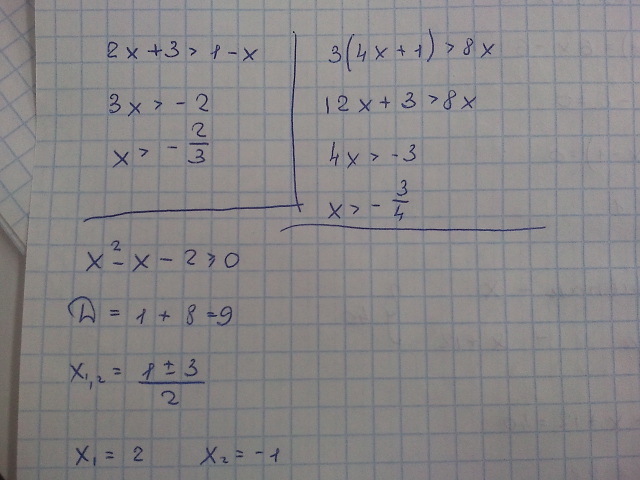 2x + 3 > 1 - x
3x > - 2
x > - 2/3
3(4x + 1) > 8x
12x + 3 > 8x
4x > - 3
x > - 3/4
x² - x - 2 ≥ 0
D = 1 + 8 = 9
x₁,₂ = (1 ± 3)/2
x₁ = 2 x₂ = -1